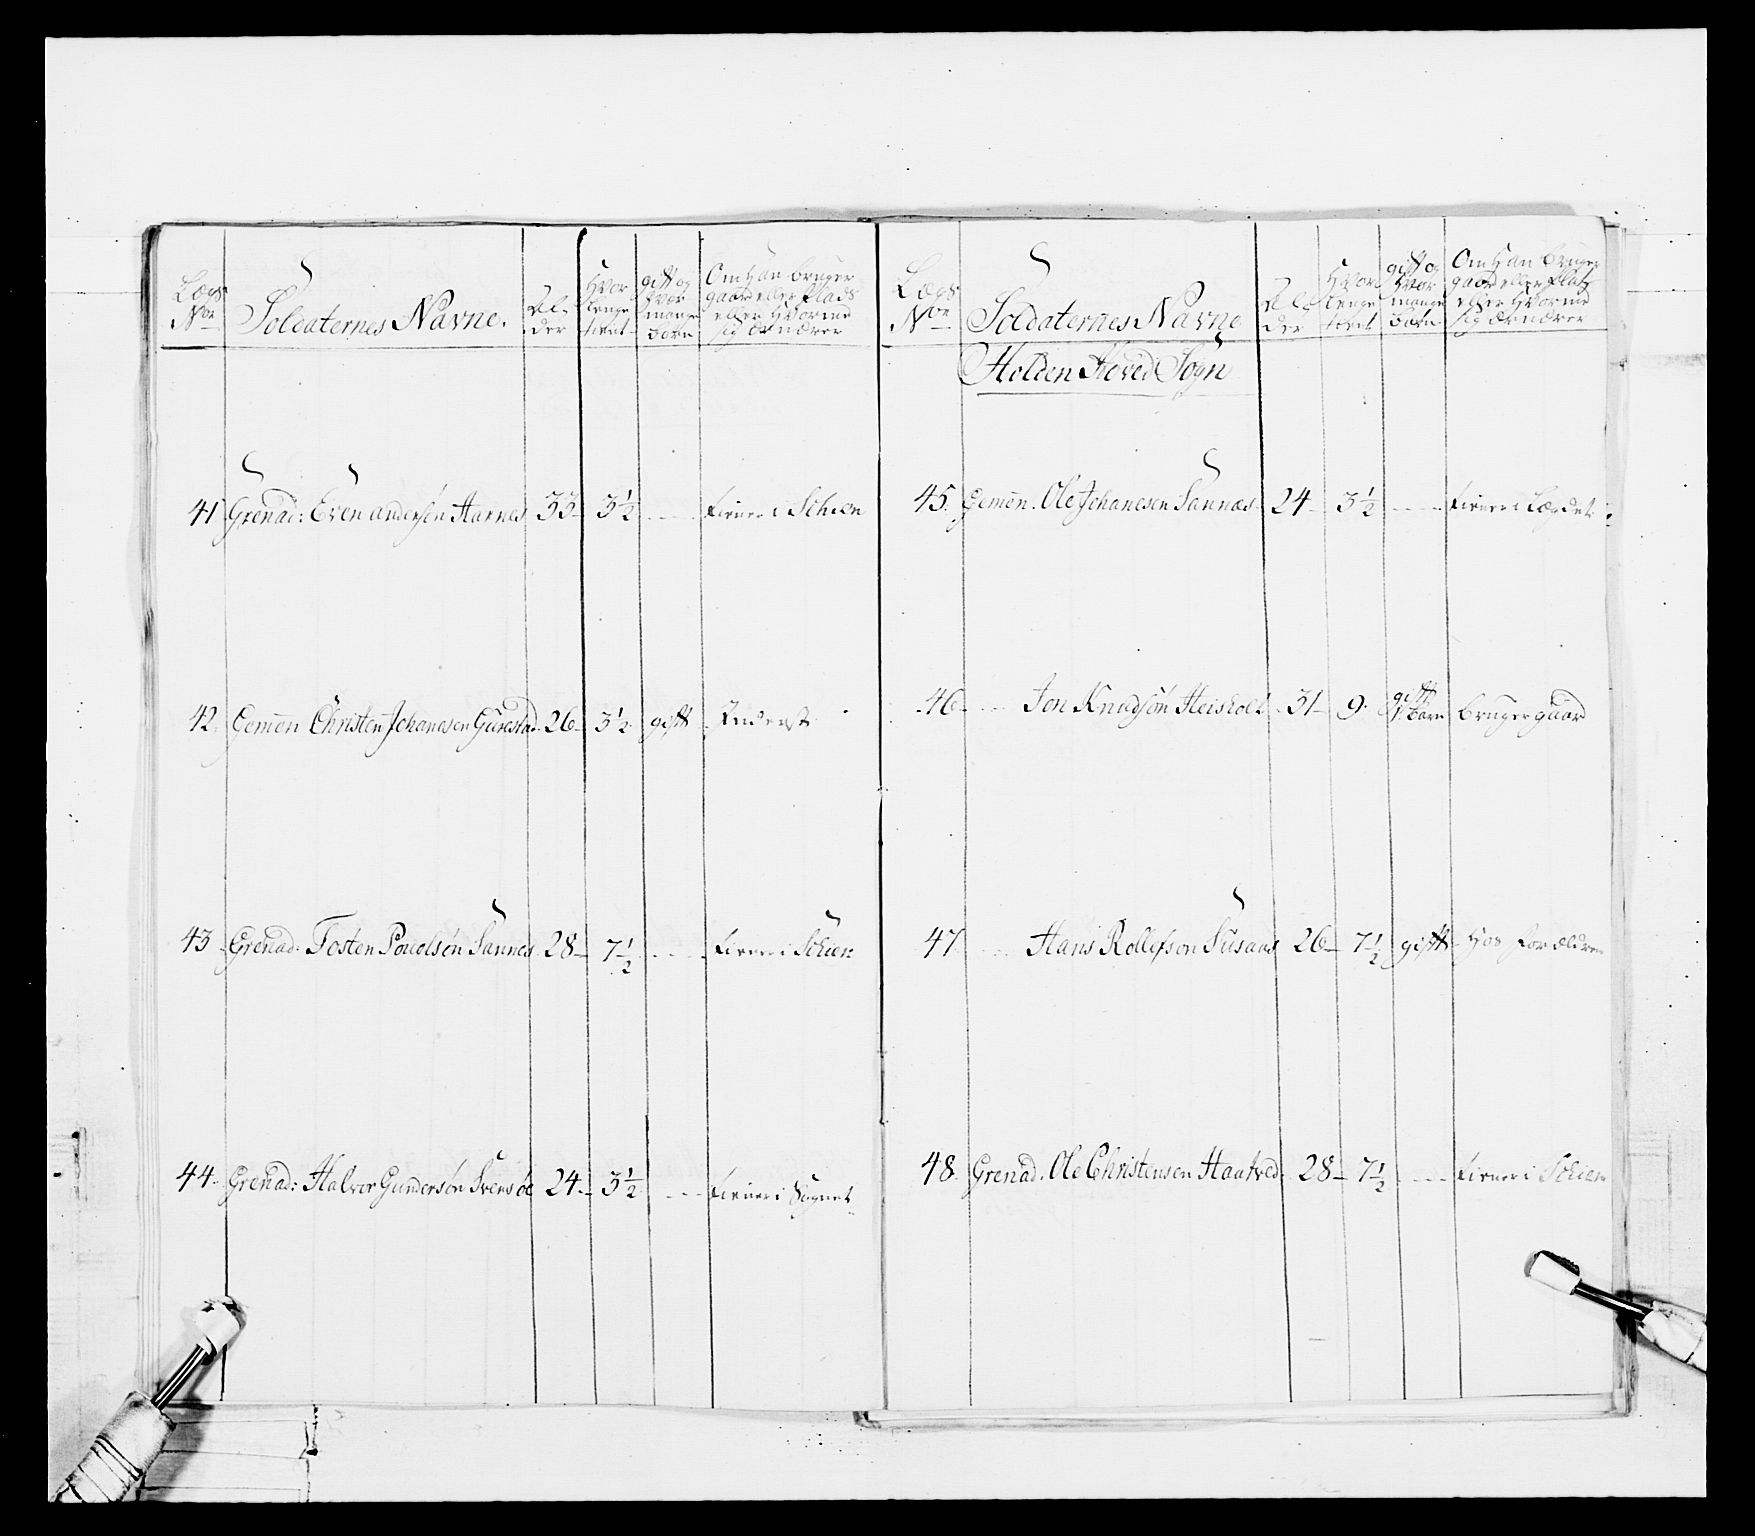 Lægs Noe
Soldaternes Navne.
Al-
der
Hvor
lenge
tient
gift og
hvor
mange
børn
Om Han bruger
gaard eller Plads
eller Hvormed
sig ernærer
41 Grenad: Even andersøn Aarnes 33 3½ - - - tiener i Schien
42. Gemen Christen Johanesen 26 3½ gift Inderst
43 Grenad: Tosten Pouelsøn Sannes 28 7½ - - - tiener i Schien
44. Grenad: Halvor Gundersøn 24 3½ - - - tiener i Sognet
Lægs Noe
Soldaternes Navne
Al-
der
Hvor
lenge
tient
gift og
hvor
mange
børn
Om Han bruger
gaard eller Plads
eller Hvormed
sig ernærer
Holden Hoved Sogn
45. Gemen. Ole Johanesen Sannæs 24 3½ - - - tiener i Lægdet
46 - - - Jon Knudsøn Heisholt 31 9 gift 1 børn bruger gaard
47 - - - Hans Rollefson 26 7½ gift Hos forældrene
48 Grenad. Ole Christensen Haatved 28 7½ - - - tiener i Schien